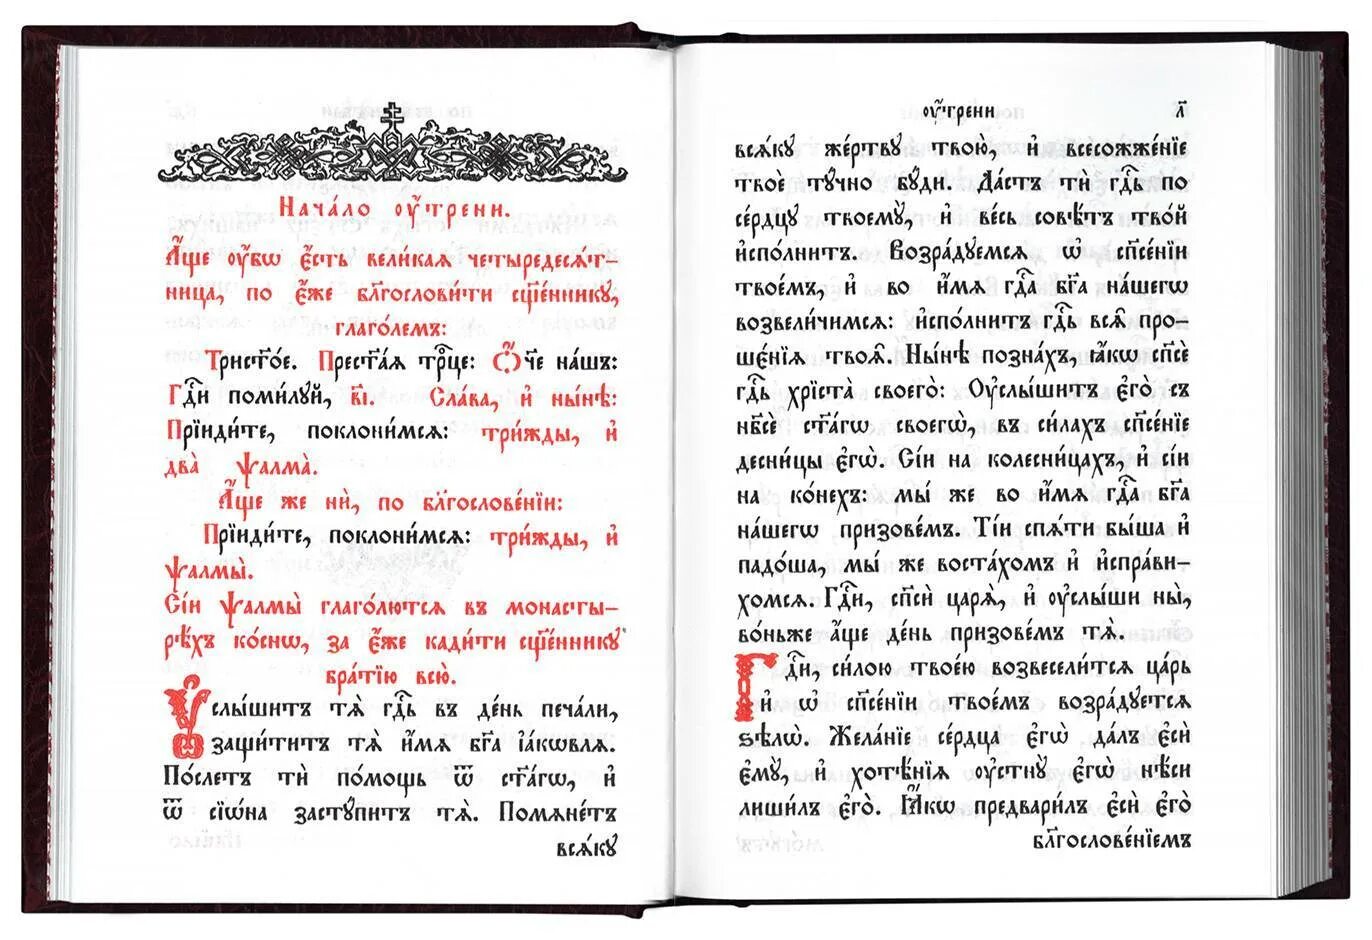 Нача́ло ᲂу҆́трени.
А҆́ще ᲂу҆́бѡ є҆́сть вели́каѧ четыредесѧ́т-
ница, по є҆́же блгⷭ҇ослови́ти сщ҃е́ннику,
глаго́лемъ:
Трист҃о́е. Прест҃а́ѧ трⷪ҇це: Ѽ҆ч҃е на́шъ:
Гдⷭ҇и поми́лꙋй, в҃і. Сла́ва, и҆ ны́нѣ:
Прїиди́те, поклони́мсѧ: три́жды, и҆
два̀ ѱалма̀.
А҆́ще же нѝ, по бл҃гослове́нїи:
Прїиди́те, поклони́мсѧ: три́жды, и҆
ѱалмы̀.
Сі́и ѱалмы̀ глаго́лютсѧ въ монасты-
рѣ́хъ ко́снѡ, за є҆́же кади́ти сщ҃е́ннику
бра́тїю всю̀.
Услы́шитъ тѧ̀ гдⷭ҇ь въ де́нь печа́ли,
защи́титъ тѧ̀ и҆́мѧ бг҃а і҆а́кѡвлѧ.
По́слетъ тѝ по́мощь ѿ ст҃а́гѡ, и҆
ѿ сїѡ́на засту́питъ тѧ̀. Помѧне́тъ
всѧ́ку
ᲂу҆́трени л҃
всѧ́ку же́ртву твою̀, и҆ всесожже́нїе
твоѐ ту́чно бу́ди. Да́стъ тѝ гдⷭ҇ь по
се́рдцу твоему̀, и҆ ве́сь совѣ́тъ тво́й
и҆спо́лнитъ. Возра́дуемсѧ ѡ҆ сп҃се́нїи
твое́мъ, и҆ во и҆́мѧ гдⷭ҇а бг҃а на́шегѡ
возвели́чимсѧ: и҆спо́лнитъ гдⷭ҇ь всѧ̑ про-
ше́нїѧ твоѧ̑. Ны́нѣ позна́хъ, ꙗ҆́кѡ сп҃сѐ
гдⷭ҇ь хрїста̀ своего̀: Оу҆слы́шитъ є҆го̀ съ
нб҃сѐ ст҃а́гѡ своегѡ̀, въ си́лахъ сп҃се́нїе
десни́цы є҆гѡ̀. Сі́и на колесни́цахъ, и҆ сі́и
на ко́нехъ: мы́ же во и҆́мѧ гдⷭ҇а бг҃а
на́шегѡ призове́мъ. Ті́и спѧ́ти бы́ша и҆
падо́ша, мы́ же воста́хомъ и҆ и҆спра́ви-
хомсѧ. Гдⷭ҇и, сп҃сѝ царѧ̀, и҆ ᲂу҆слы́ши ны̀,
во́ньже а҆́ще де́нь призове́мъ тѧ̀.
Гдⷭ҇и, си́лою твое́ю возвесели́тсѧ ца́рь
и҆ ѡ҆ сп҃се́нїи твое́мъ возра́дуетсѧ
ѕѣлѡ̀. Жела́нїе се́рдца є҆гѡ̀ да́лъ є҆сѝ
є҆му̀, и҆ хотѣ́нїѧ ᲂу҆стну̀ є҆гѡ̀ нѣ́си
лиши́лъ є҆го̀. Ꙗ҆́кѡ предвари́лъ є҆сѝ є҆го̀
бл҃гослове́нїемъ